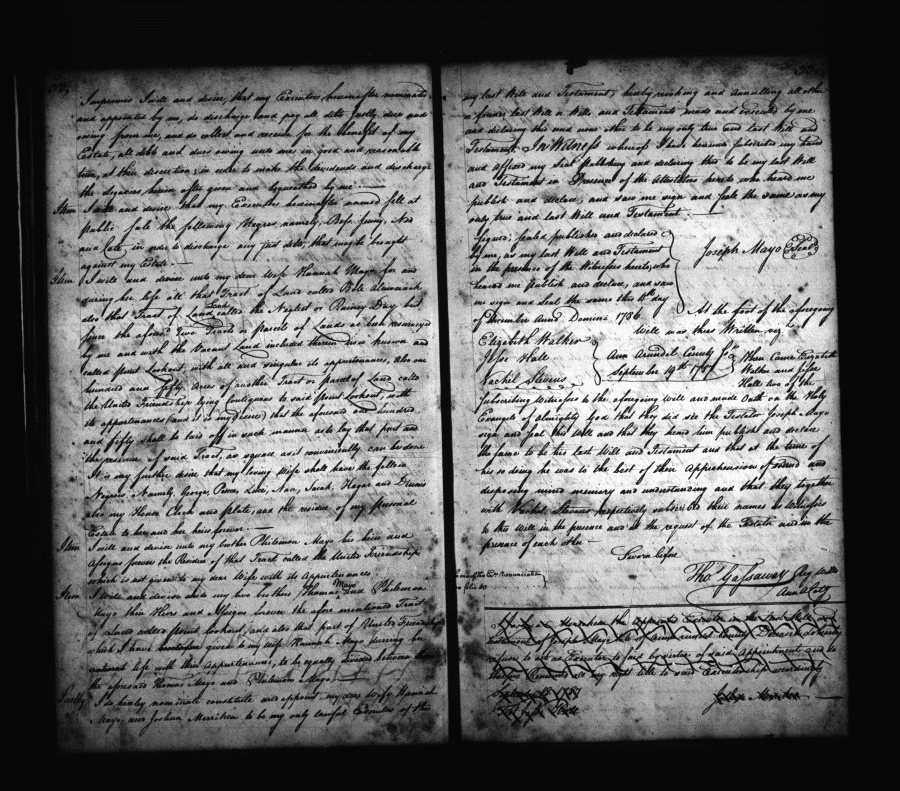 Imprimis I will and desire, that my Executors hereinafter nominated
and appointed by me, do discharge and pay all debts justly due and
owing from me, and do collect and receive for the benefit of my
Estate, all debts and dues owing unto me in good and reasonable
time, at their discretion, in order to make the dividends and discharge
the Legacies herein after given and bequeathed by me
Item I will and desire that my Executor hereinafter named sell at
Public Sale the following Negroes namely, Bess, Jenny, Ned
and Cate, in order to discharge any just debts, that may be brought
against my Estate
Item I will and devise unto my dear Wife Hannah Mayo for and
during her life all that Tract of Land called
also that Tract of Land called the Neglect or Rainey Day but
since the aforesd Two Tracts or Parcels of Lands as both resurveyed
by me and with the Vacant Land included therein now known and
called Point Lookout, with all and singular its appurtenances, also one
hundred and fifty Acres of another Tract or parcel of Land called
the United Friendship lying Contiguous to said Point Lookout, with
its appurtenances (and it is my desire) that the aforesaid one hundred
and fifty shall be laid off in such manner as to lay that part and
the residue of said Tract, as square as it conveniently can be done
It is my further desire that my loving Wife shall have the follow
Negroes, Namely, George, Pence, Luce, Nan, Sarah, Hagar and Dennis
also my House Clock and plate, and the residue of my personal
Estate to her and her heirs forever
Item I will and devise unto my brother Philemon Mayo his heirs and
Assigns forever the Residue of that Tract called the United Friendship
which is not given to my dear Wife with its Appurtenances
Item I will and devise unto my two brothers Thomas Mayo and Philemon
Mayo their Heirs and Assigns forever the afore mentioned Tract
of Land called Point Lookout, and also that part of United Friendship
which I have given to my wife Hannah Mayo during her
natural life with their Appurtenances, to be equally divided between the
the aforesaid Thomas Mayo and Philemon Mayo
Lastly I do hereby nominate constitute and appoint my dear Wife Hannah
Mayo and Joshua Merriken to be my only lawful Executors of this
my last Will and Testament, hereby revoking and Annulling all other
or former last Will or Wills, and Testaments made and executed by me
and declaring this and none other to be my only true and last Will and
Testament. In Witness whereof I have hereunto subscribed my hand
and affixed my Seal Publishing and declaring this to be my last Will
and Testament in Presence of the Attestators hereto who heard me
publish and declare, and saw me sign and seale the same as my
only true and last Will and Testament
Signed, sealed published and declared
by me, as my last Will and Testament
in the presence of the Witnesses hereto, who
heard me publish and declare, and saw
me sign and Seal the same this 4th day
of December Anno Domini 1786
Joseph Mayo (Seal)
At the foot of the aforegoing
Will was thus Written viz
Elizabeth Walker
Jesse Hall
Vachel Stevens
Ann Arundel County Sct
September 19th 1787
Then Came Elizabeth
Walker and Jesse
Hall two of the
Subscribing Witnesses to the aforegoing Will and made Oath on the Holy
Evangels of almighty God that they did see the Testator Joseph Mayo
sign and seal this Will and that they heard him publish and declare
the same to be his last Will and Testament and that at the time of
his so doing he was to the best of their Apprehensions of sound and
disposing mind memory and understanding and that they together
with Vachel Stevens respectively subscribed their names as Witnesses
to this Will in the presence and at the request of the Testator and in the
presence of each other
Sworn before
Thos Gassaway Reg Wills
Ann Al Coty
I Joshua Merriken the Appointed Executor in the last Will and
testament of Joseph Mayo late of Ann Arundel County Deceased do hereby
refuse to act as Executor to said by virtue of said Appointment and do
therefore Renounce all my right title to said Executorship accordingly
Joshua Merriken